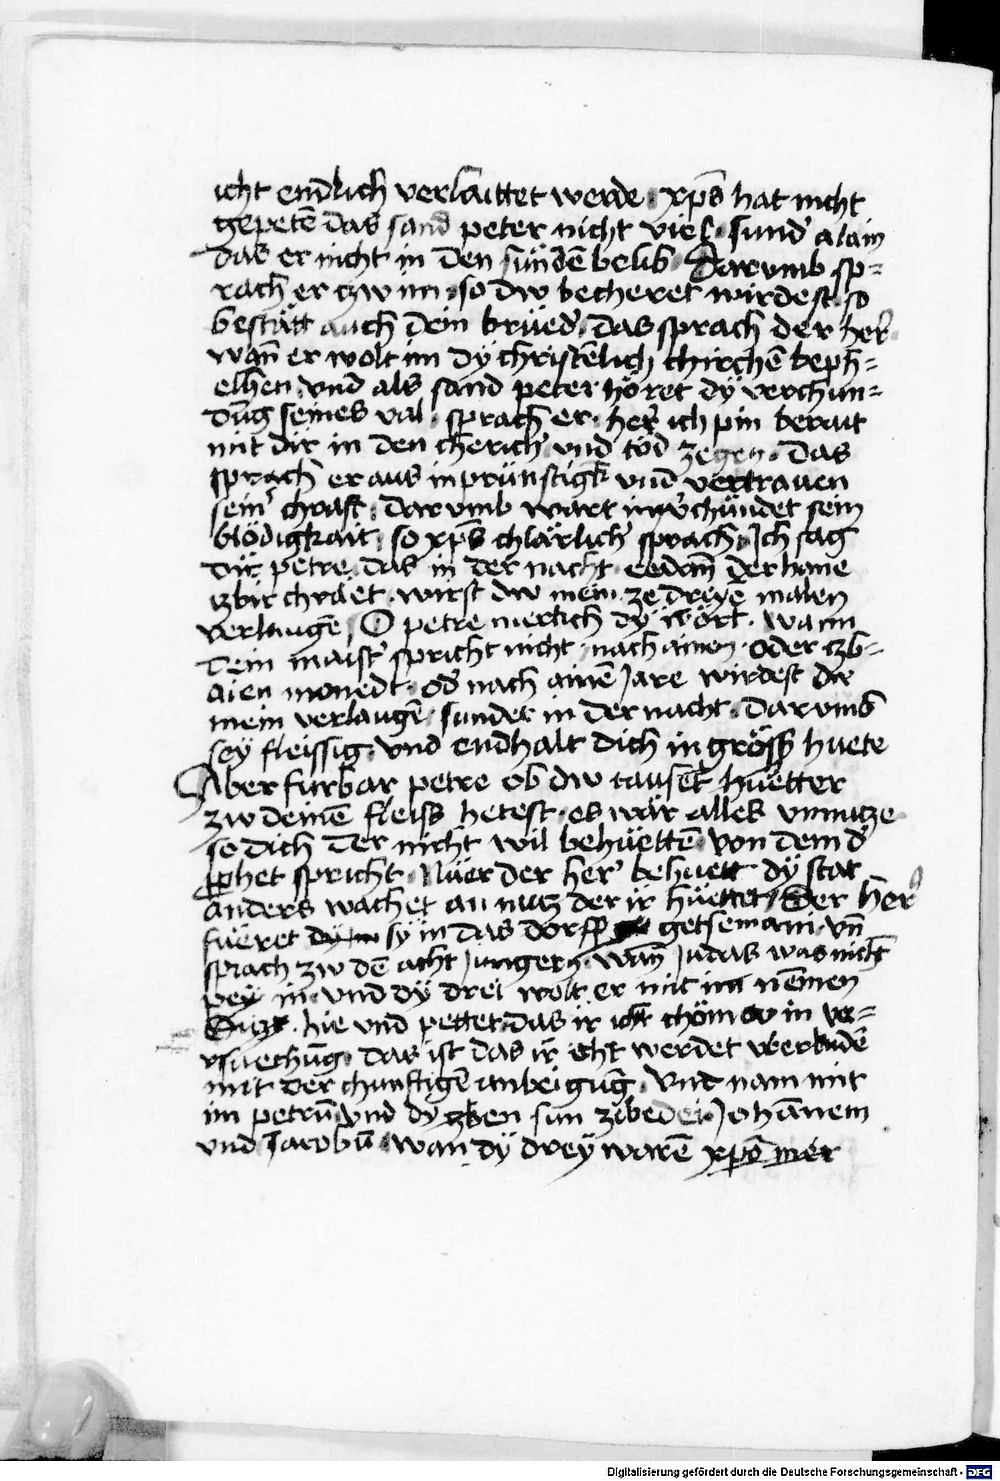 icht endlich verlaittet werde · xp̄s hat nicht
gepetē das sand peter nicht viel · sund̾ alain
das er nicht in den sündē belib · Darvmb sp=
rach er czw im · so dw becheret wirdest · so
bestätt auch dein brüed̾ · das sprach der her̄ ·
wan̄ er wolt im dÿ christēlich chirchē beph=
elhen · vnd als sand peter höret dÿ verchun=
dūg seines val · sprach er · her̄ ich pin berait
mit dir in den cherich̾ vnd tod zegen · das
sprach er aus inprünstigk̄ vnd vertrauen
sein̾ chraft · darvmb wart im v̾chündet sein
blödigkait · so xp̄s chlärlich̾ sprach · Ich sag
dir petre · das in der nacht · ee dan̄ der hane
czbir chräet · wirst dw mein ze dreyē malen
verlaugē · O petre merkch dÿ wört · wann
dein maist̾ spricht nicht · nach ainen · oder czb=
aien monedt · od̾ nach ainē Jare wirdest dw
mein verlaugē · sunder in der nacht · darvmb
seÿ fleissig · vnd endhalt dich in gröss̾ huete
Aber furbar petre ob dw tausēt huetter
zw deinē fleiss hetest · es wär alles vnnutze ·
so dich der nicht wil behüettē · von dem d̾
p̄phet spricht · Nüer der her̄ behuett dÿ stat
anders wachet an nutz der ir hüettet / Der her̄
fueret sÿ in das dorff getsemani · vn̄
sprach zw dē acht Jungern̄ · wan̄ Judas was nicht
peÿ in · vnd dÿ drei wolt er mit im nēmen
Sitzt · hie vnd pettet · das ir icht chömt in ver=
rsuechūg · das ist das ir icht werdet vberbudē
mit der chunftigē anbeigūg · Vnd nam mit
im petrū · vnd dÿ zben sun zibedei · Johānem
vnd Jacobū · wan dÿ dreÿ warē xp̄o mer